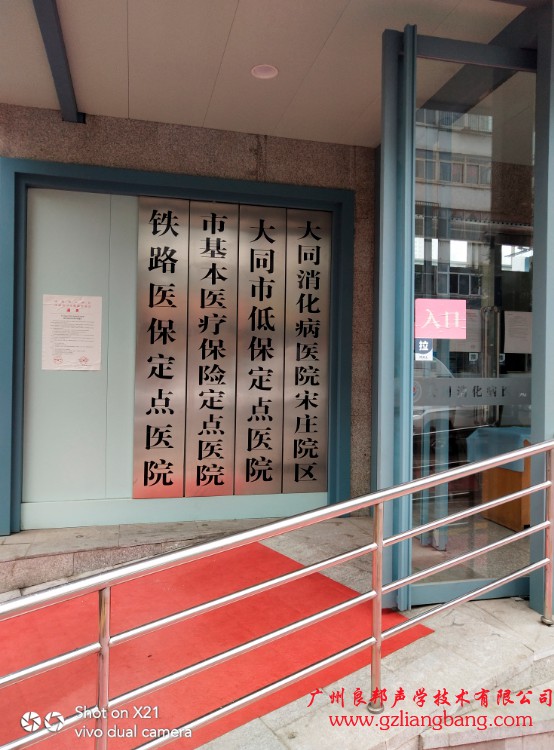 大同消化病医院宋庄院区
大同市低保定点医院
市基本医疗保险定点医院
铁路医保定点医院
入口
拉
同消化病
广州良邦声学技术有限公司
www.gzliangbang.com
Shot on X21
vivo dual camera